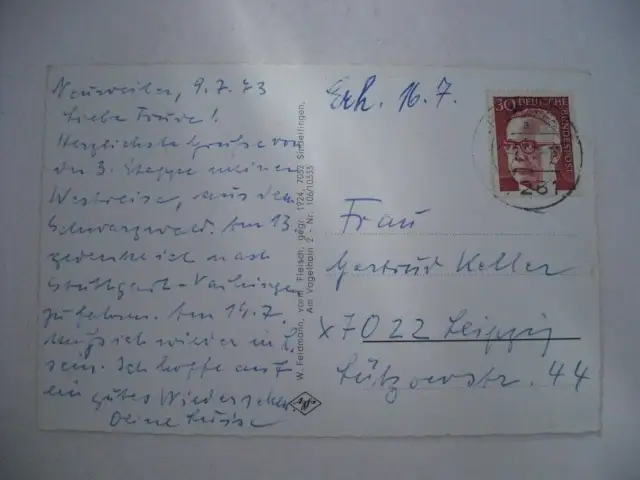 Neuweiler, 9.7.73
Liebe Trude!
Herzlichste Grüße von
der 3. Etappe meiner
Westreise, aus dem
Schwarzwald. Am 13.
gedenke ich nach
Stuttgart-Vaihingen
zu fahren. Am 14.7
muß ich wieder in L.
sein. Ich hoffe auf
ein gutes Wiedersehen.
Deine Luise
W. Feldmann, vorm. Fleisch, gegr. 1924, 7032 Sindelfingen,
Am Vogelhain 2 - Nr. 106/10335
Erh. 16.7.
30 DEUTSCHE
BUNDESPOST
261
Frau
Gertrud Keller
x7022 Leipzig
Lützowstr. 44